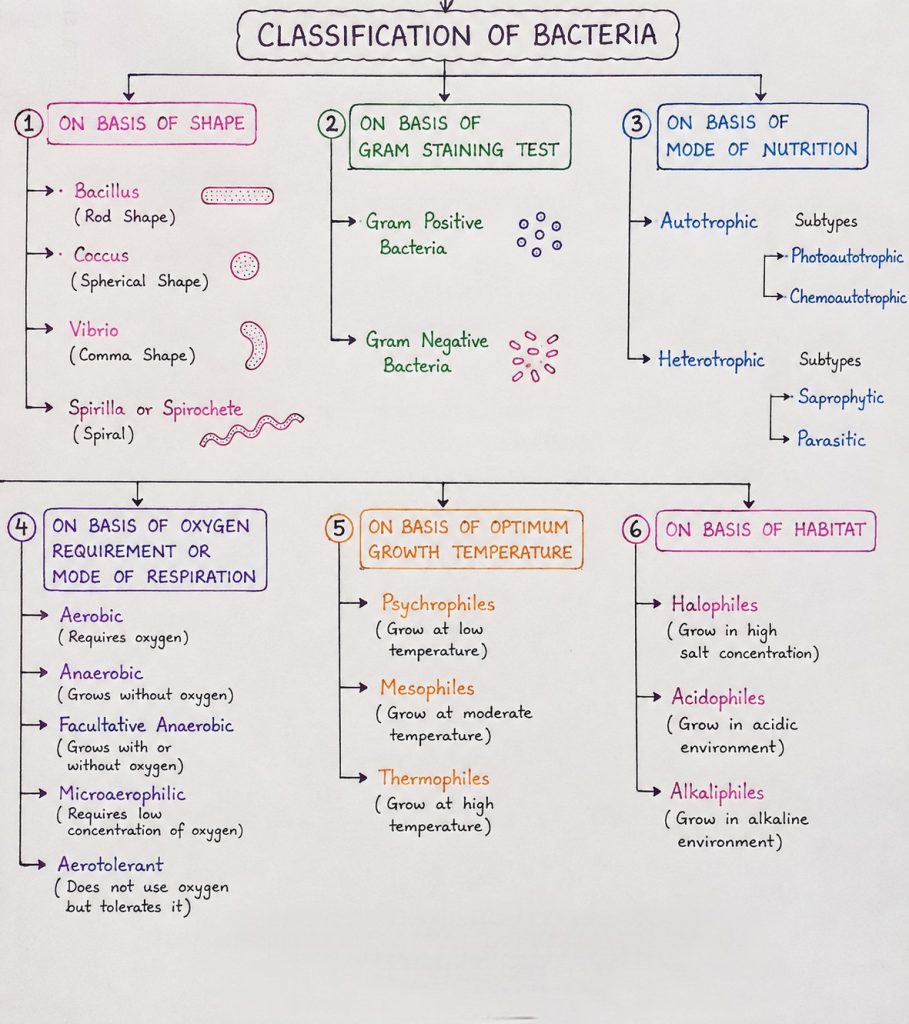 CLASSIFICATION OF BACTERIA
1 ON BASIS OF SHAPE
Bacillus
(Rod Shape)
Coccus
(Spherical Shape)
Vibrio
(Comma Shape)
Spirilla or Spirochete
(Spiral)
2 ON BASIS OF
GRAM STAINING TEST
Gram Positive
Bacteria
Gram Negative
Bacteria
3 ON BASIS OF
MODE OF NUTRITION
Autotrophic Subtypes
Photoautotrophic
Chemoautotrophic
Heterotrophic Subtypes
Saprophytic
Parasitic
4 ON BASIS OF OXYGEN
REQUIREMENT OR
MODE OF RESPIRATION
Aerobic
(Requires oxygen)
Anaerobic
(Grows without oxygen)
Facultative Anaerobic
(Grows with or
without oxygen)
Microaerophilic
(Requires low
concentration of oxygen)
Aerotolerant
(Does not use oxygen
but tolerates it)
5 ON BASIS OF OPTIMUM
GROWTH TEMPERATURE
Psychrophiles
(Grow at low
temperature)
Mesophiles
(Grow at moderate
temperature)
Thermophiles
(Grow at high
temperature)
6 ON BASIS OF HABITAT
Halophiles
(Grow in high
salt concentration)
Acidophiles
(Grow in acidic
environment)
Alkaliphiles
(Grow in alkaline
environment)